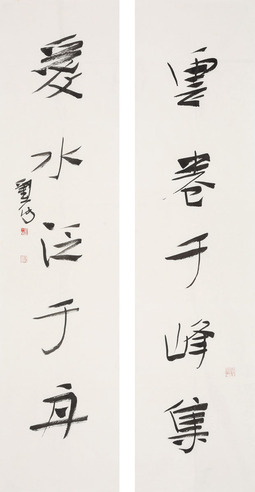 雲卷千峰集
愛水泛于舟